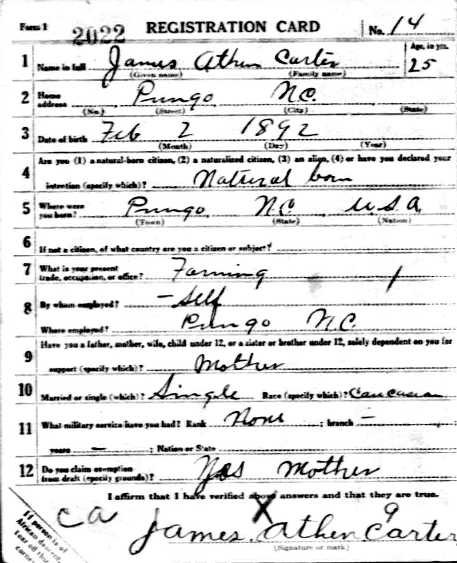 Form 1 2022 REGISTRATION CARD No. 14
1 Name in full James Athen Carter Age, in yrs. 25
(Given name) (Family name)
2 Home address Pungo N.C.
(No.) (Street) (City) (State)
3 Date of birth Feb 2 1892
(Month) (Day) (Year)
4 Are you (1) a natural-born citizen, (2) a naturalized citizen, (3) an alien, (4) or have you declared your
intention (specify which)? Natural born
5 Where were you born? Pungo N.C. U.S.A.
(Town) (State) (Nation)
6 If not a citizen, of what country are you a citizen or subject?
7 What is your present trade, occupation, or office? Farming
8 By whom employed? - Self
Where employed? Pungo N.C.
9 Have you a father, mother, wife, child under 12, or a sister or brother under 12, solely dependent on you for
support (specify which)? Mother
10 Married or single (which)? Single Race (specify which)? Caucasian
11 What military service have you had? Rank None ; branch —
years — ; Nation or State
12 Do you claim exemption from draft (specify grounds)? Yes Mother
I affirm that I have verified above answers and that they are true.
ca X 9
James Athen Carter
(Signature or mark)
If person is of
African descent,